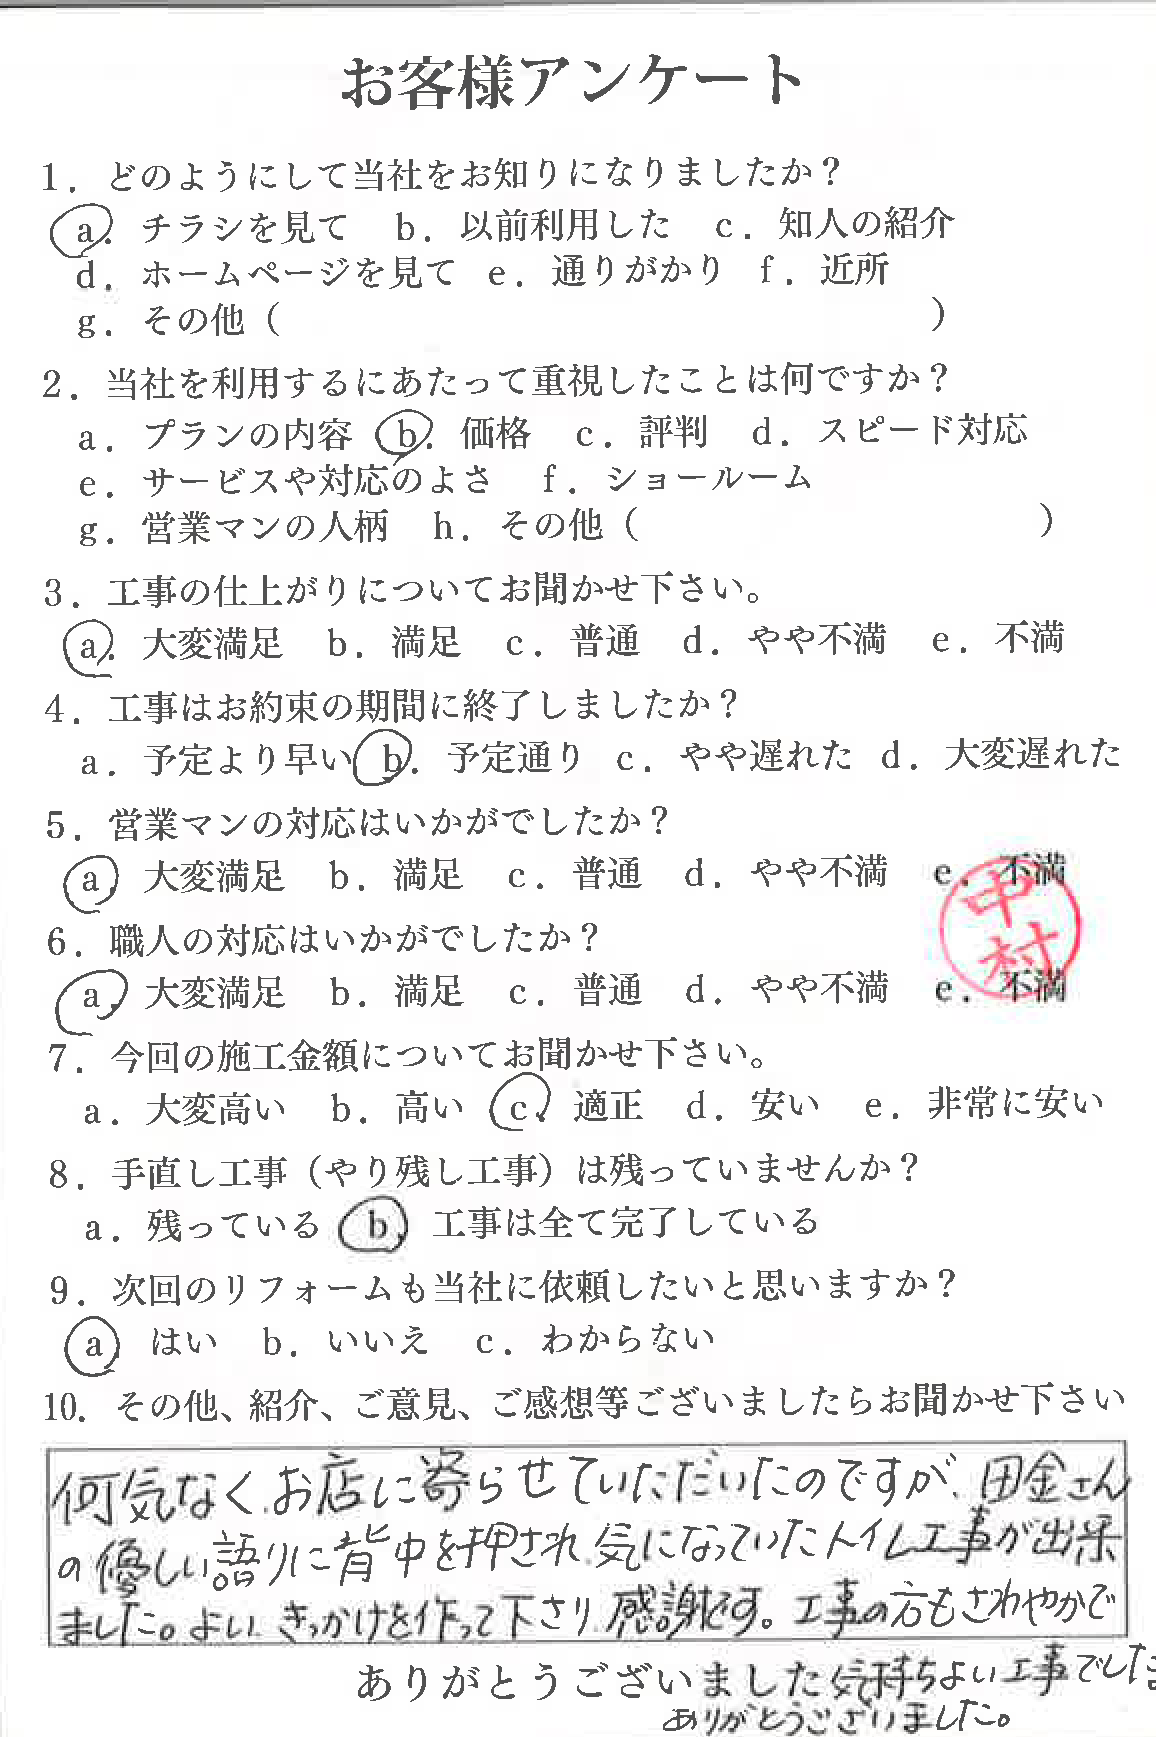 お客様アンケート
1．どのようにして当社をお知りになりましたか？
a．チラシを見て　b．以前利用した　c．知人の紹介
d．ホームページを見て　e．通りがかり　f．近所
g．その他（　　　　　　　　　　　　　　　　　　）
2．当社を利用するにあたって重視したことは何ですか？
a．プランの内容　b．価格　c．評判　d．スピード対応
e．サービスや対応のよさ　f．ショールーム
g．営業マンの人柄　h．その他（　　　　　　　　　　　）
3．工事の仕上がりについてお聞かせ下さい。
a．大変満足　b．満足　c．普通　d．やや不満　e．不満
4．工事はお約束の期間に終了しましたか？
a．予定より早い　b．予定通り　c．やや遅れた　d．大変遅れた
5．営業マンの対応はいかがでしたか？
a．大変満足　b．満足　c．普通　d．やや不満　e．不満
中村
6．職人の対応はいかがでしたか？
a．大変満足　b．満足　c．普通　d．やや不満　e．不満
7．今回の施工金額についてお聞かせ下さい。
a．大変高い　b．高い　c．適正　d．安い　e．非常に安い
8．手直し工事（やり残し工事）は残っていませんか？
a．残っている　b．工事は全て完了している
9．次回のリフォームも当社に依頼したいと思いますか？
a　はい　b．いいえ　c．わからない
10．その他、紹介、ご意見、ご感想等ございましたらお聞かせ下さい
何気なく、お店に寄らせていただいたのですが、田金さん
の優しい語りに背中を押され、気になっていたトイレ工事が出来
ました。よい、きっかけを作って下さり、感謝です。工事の方もさわやかで
ありがとうございました 気持ちよい工事でした
ありがとうございました。